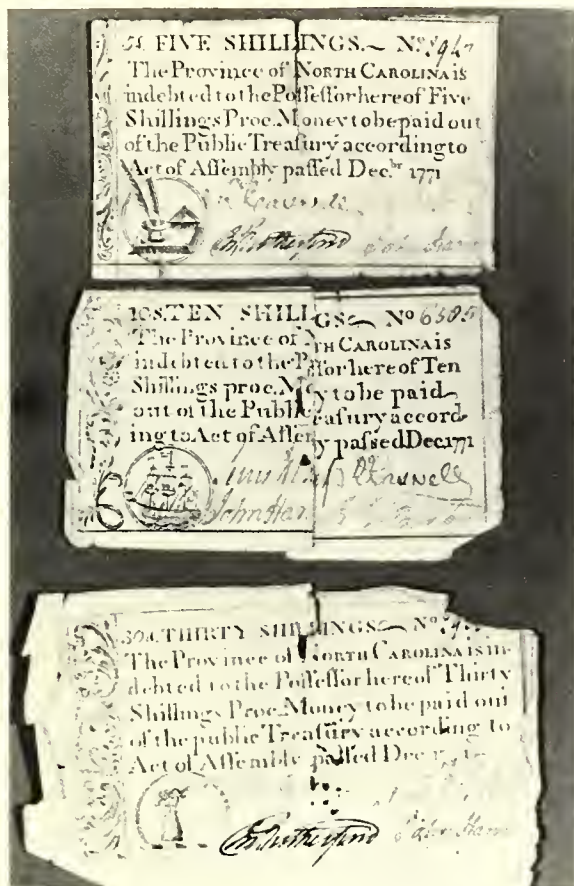 5s. FIVE SHILLINGS. ~ No.
The Province of NORTH CAROLINA is
indebted to the Poſſeſſor hereof Five
Shillings Proc. Money to be paid out
of the Public Treaſury according to
Act of Aſſembly paſſed Dec.br 1771
Rutherfurd John
10s. TEN SHILLINGS ~ No 6305
The Province of NORTH CAROLINA is
indebted to the Poſſeſſor hereof Ten
Shillings proc. Money to be paid
out of the Public Treaſury accord-
ing to Act of Aſſembly paſſed Dec. 1771
John
30s. THIRTY SHILLINGS. ~ No
The Province of NORTH CAROLINA is in-
debted to the Poſſeſſor hereof Thirty
Shillings Proc. Money to be paid out
of the public Treaſury according to
Act of Aſſembly paſſed Dec.
Rutherfurd John